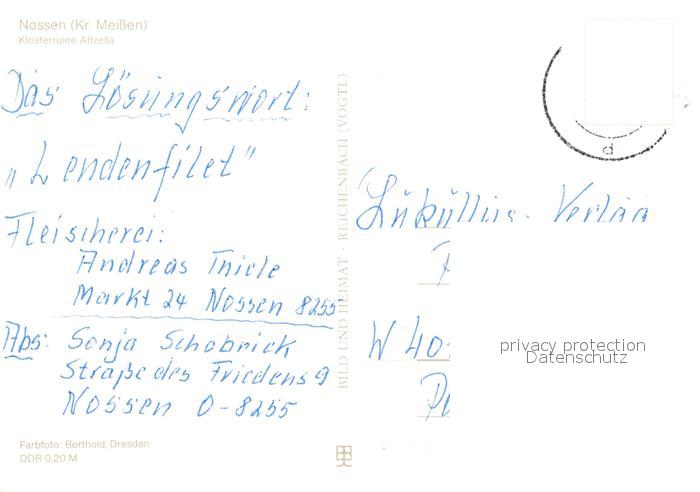 Nossen (Kr. Meißen)
Klosterruine Altzella
Das Lösungswort:
„Lendenfilet"
Fleischerei:
Andreas Thiele
Markt 24 Nossen 8255
Abs: Sonja Schobrick
Straße des Friedens 9
Nossen O-8255
Farbfoto: Berthold, Dresden
DDR 0,20 M
BILD UND HEIMAT · REICHENBACH (VOGTL)
d
Lükullus- Verlag
W 40
privacy protection
Datenschutz